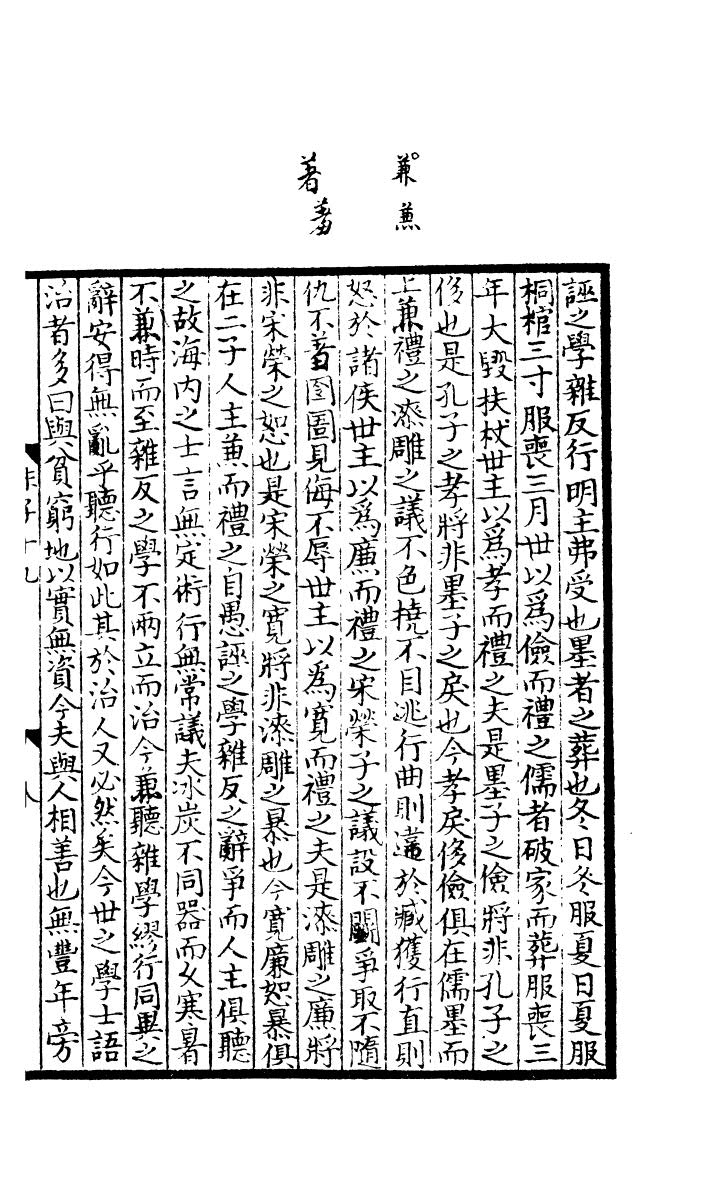 兼 蒹
著 羞
誣之學雜反行明主弗受也墨者之葬也冬日冬服夏日夏服
桐棺三寸服喪三月世以爲儉而禮之儒者破家而葬服喪三
年大毀扶杖世主以爲孝而禮之夫是墨子之儉將非孔子之
侈也是孔子之孝將非墨子之戾也今孝戾侈儉俱在儒墨而
上兼禮之漆雕之議不色橈不目逃行曲則違於臧獲行直則
怒於諸侯世主以爲廉而禮之宋榮子之議設不鬭爭取不隨
仇不羞囹圄見侮不辱世主以爲寬而禮之夫是漆雕之廉將
非宋榮之恕也是宋榮之寬將非漆雕之暴也今寬廉恕暴俱
在二子人主兼而禮之自愚誣之學雜反之辭爭而人主俱聽
之故海内之士言無定術行無常議夫冰炭不同器而久寒暑
不兼時而至雜反之學不兩立而治今兼聽雜學繆行同異之
辭安得無亂乎聽行如此其於治人又必然矣今世之學士語
治者多曰與貧窮地以實無資今夫與人相善也無豐年旁